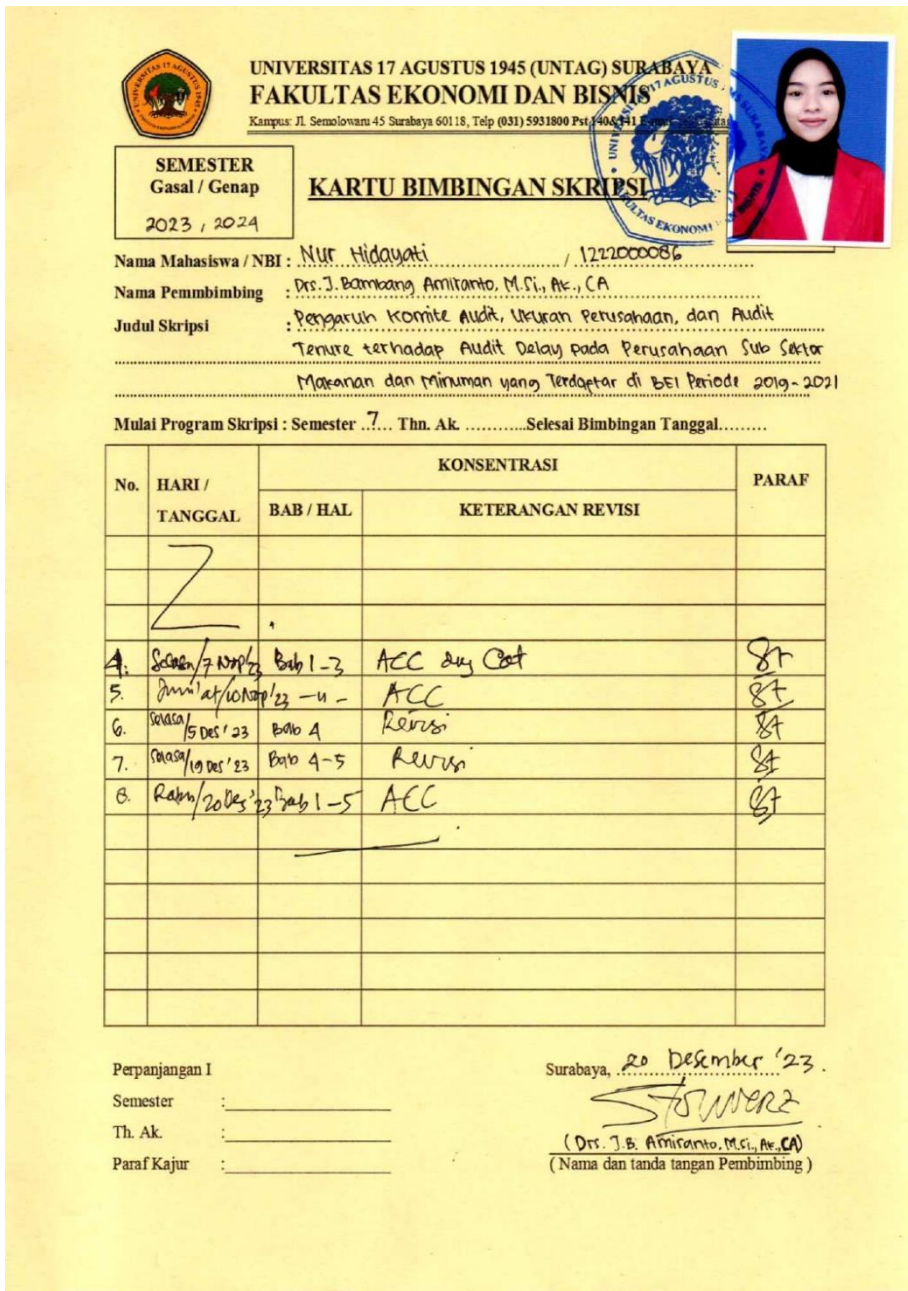 UNIVERSITAS 17 AGUSTUS 1945 (UNTAG) SURABAYA
FAKULTAS EKONOMI DAN BISNIS
Kampus: Jl. Semolowaru 45 Surabaya 60118, Telp (031) 5931800 Pst 140&141
SEMESTER
Gasal / Genap
2023 / 2024
KARTU BIMBINGAN SKRIPSI
Nama Mahasiswa / NBI : Nur Hidayati / 1222000086
Nama Pemmbimbing : Drs. J. Bambang Amiranto, M.Si., Ak., CA
Judul Skripsi : Pengaruh Komite Audit, Ukuran Perusahaan, dan Audit
Tenure terhadap Audit Delay pada Perusahaan Sub Sektor
Makanan dan Minuman yang Terdaftar di BEI Periode 2019-2021
Mulai Program Skripsi : Semester ..7... Thn. Ak. ............Selesai Bimbingan Tanggal.........
No. HARI / TANGGAL KONSENTRASI PARAF
BAB / HAL KETERANGAN REVISI
4. Selasa/7 Nop'23 Bab 1-3 ACC
5. Jum'at/10 Nop'23 -u- ACC
6. Selasa/5 Des'23 Bab 4 Revisi
7. Selasa/19 Des'23 Bab 4-5 Revisi
8. Rabu/20 Des'23 Bab 1-5 ACC
Perpanjangan I
Semester :
Th. Ak. :
Paraf Kajur :
Surabaya, 20 Desember '23.
(Drs. J.B. Amiranto, M.Si., Ak., CA)
( Nama dan tanda tangan Pembimbing )